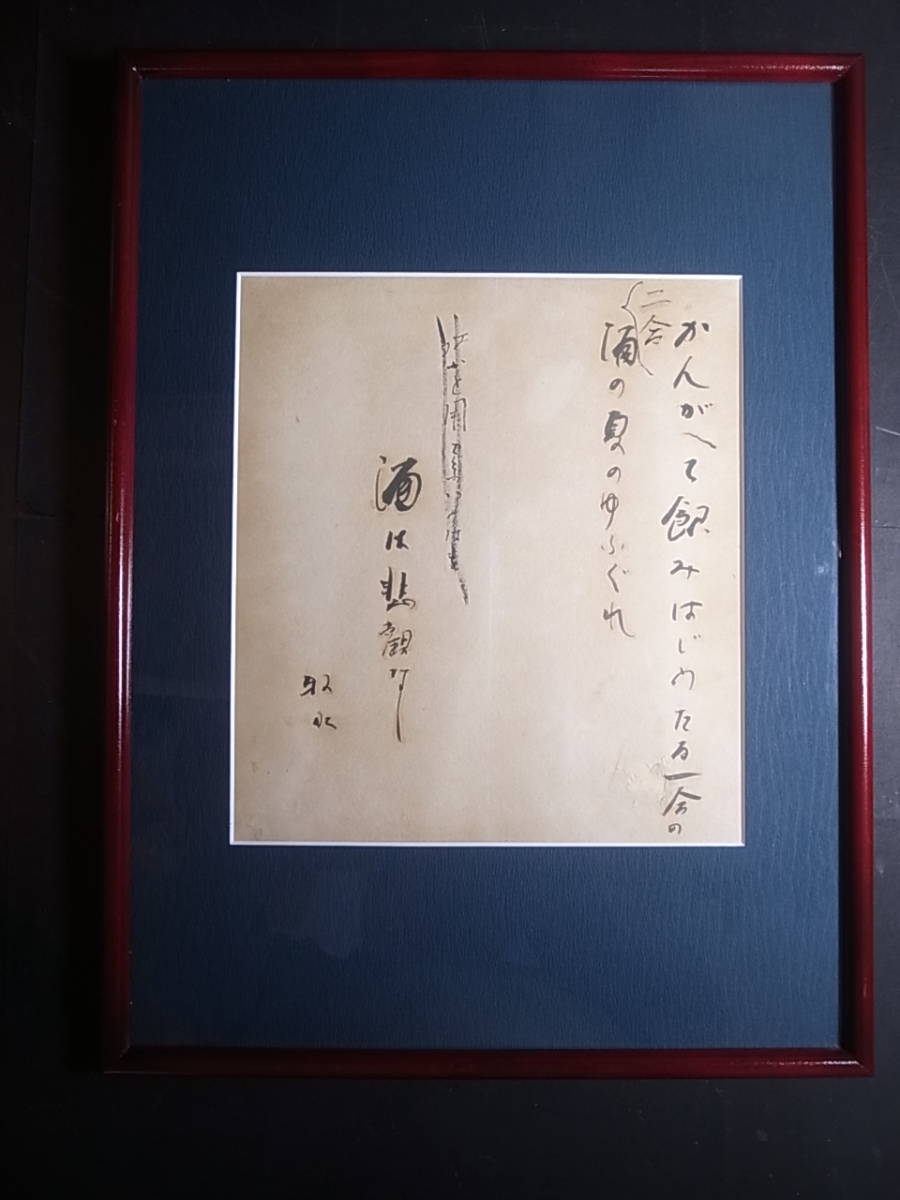 かんがへて飲みはじめたる一合の
二合
酒の夏のゆふぐれ
酒は悲観なし
牧水